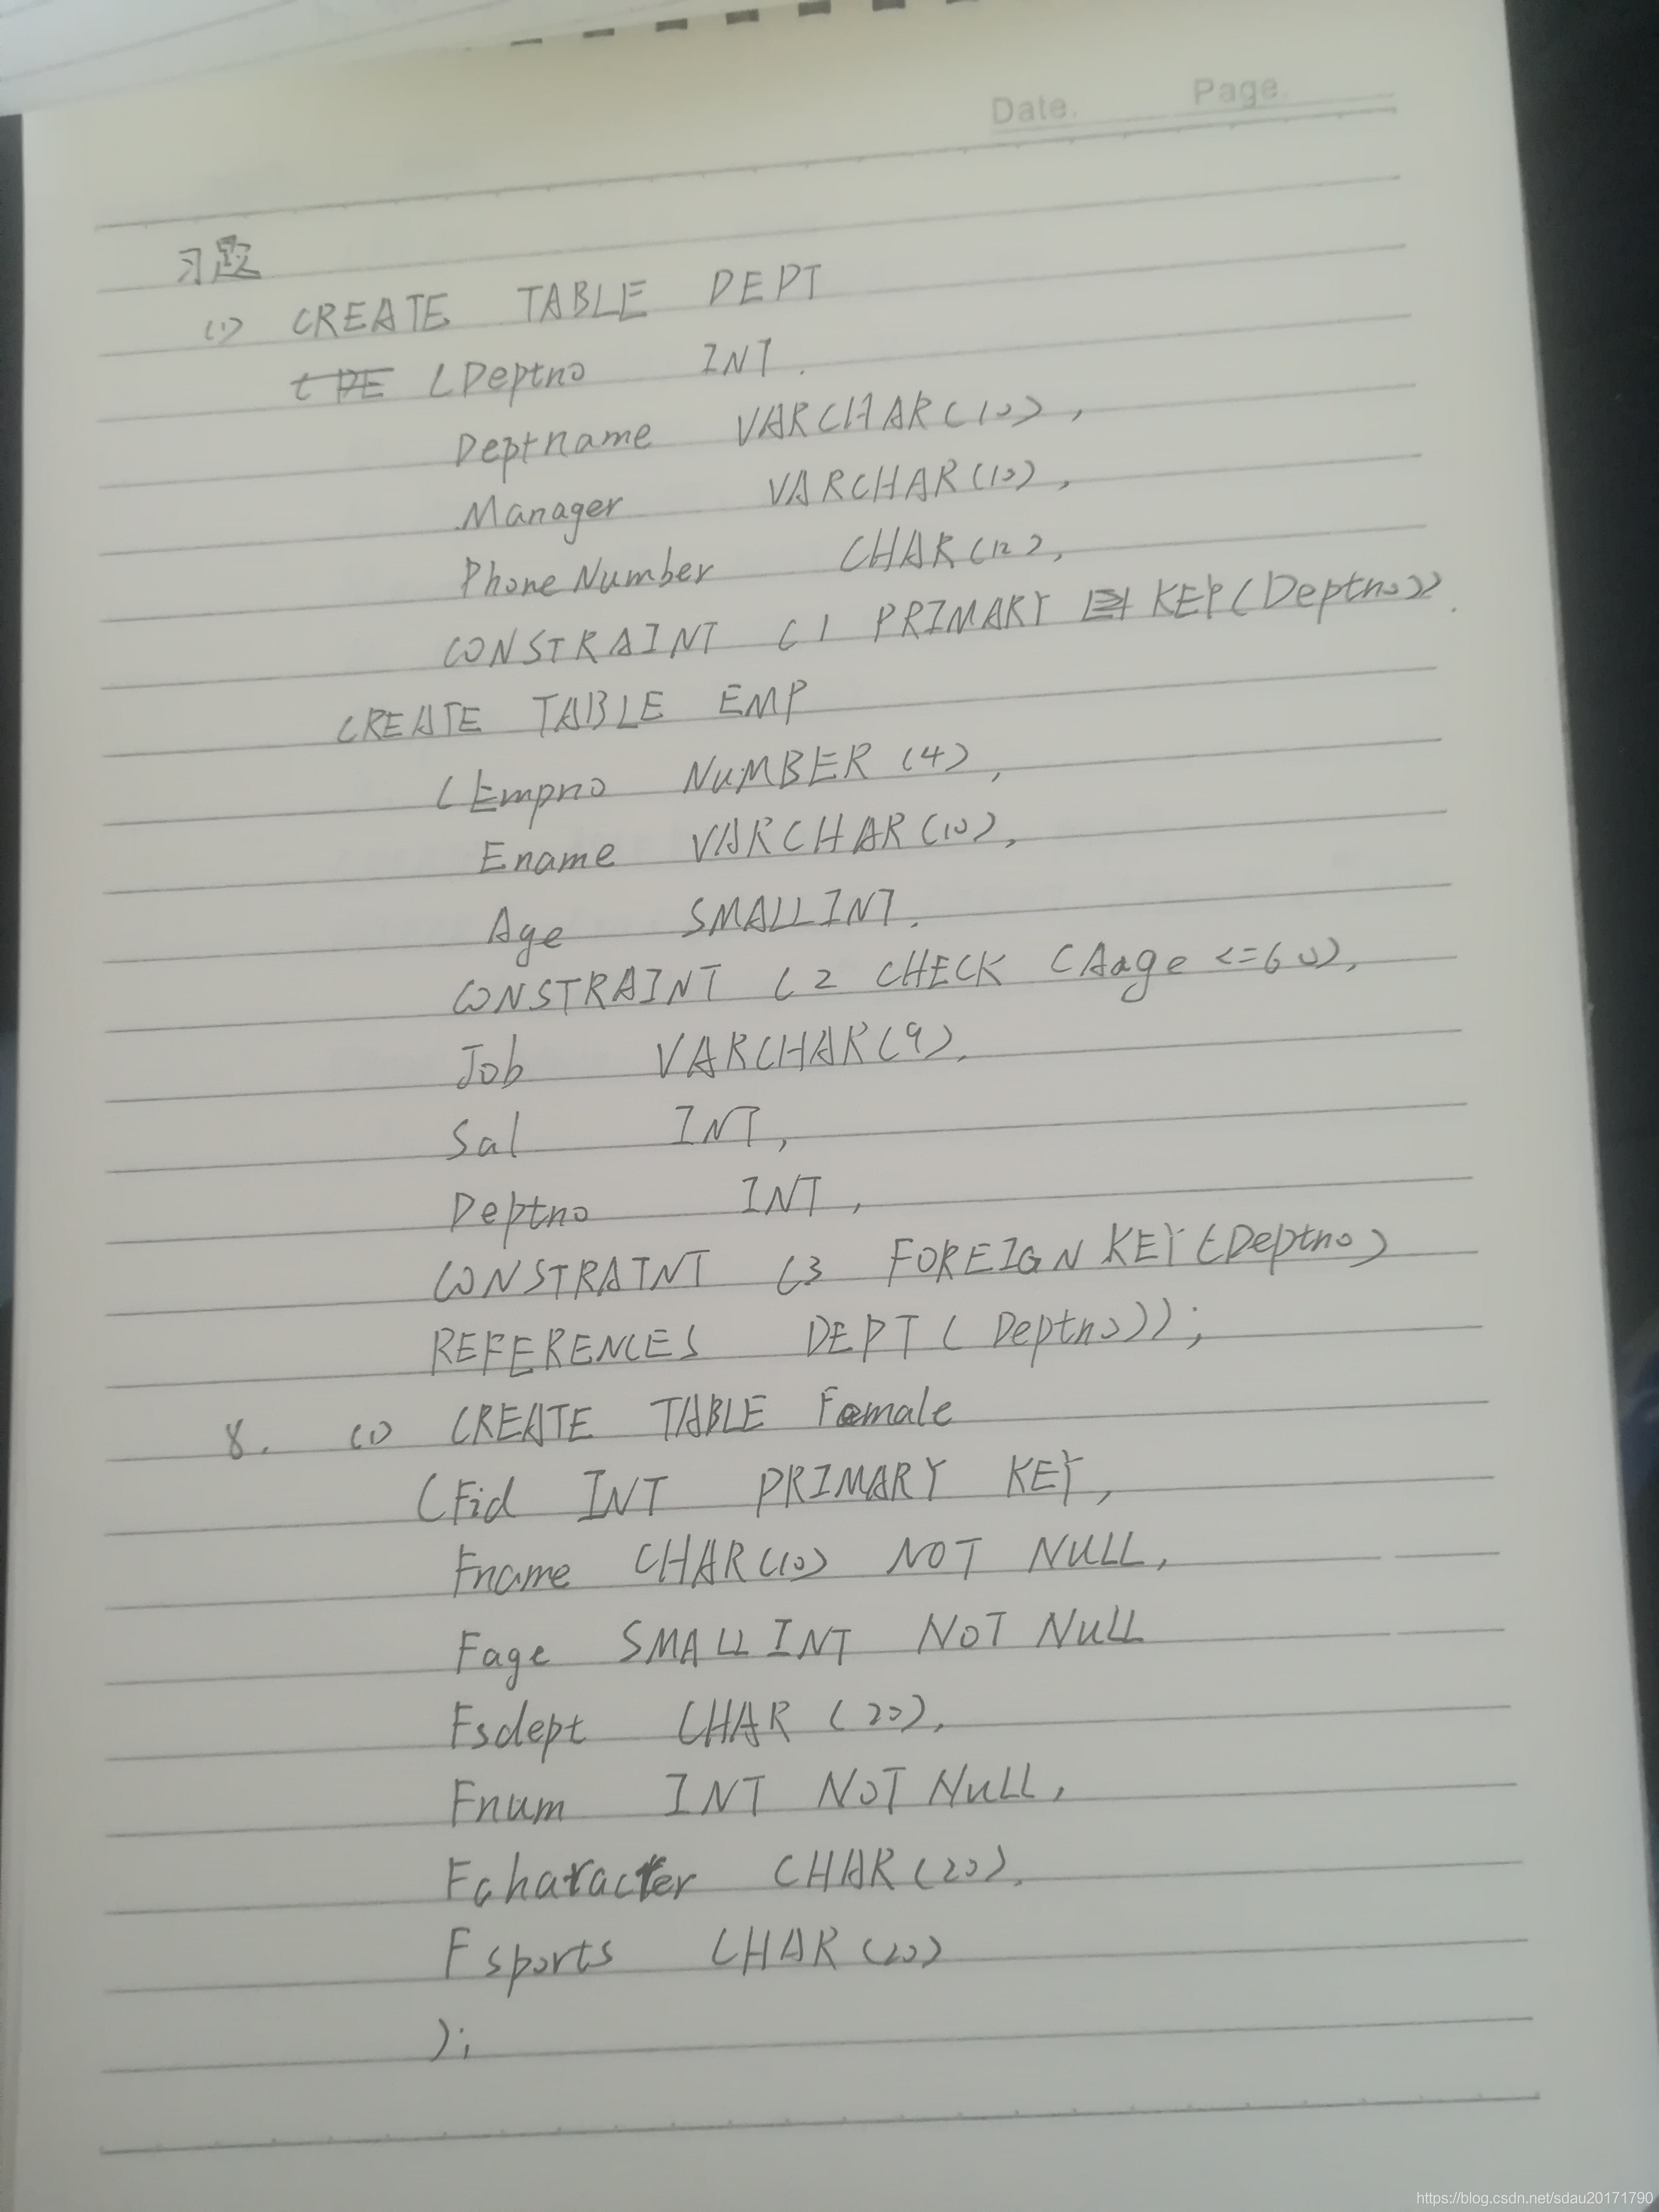 Date. Page.
习题
(1) CREATE TABLE DEPT
(Deptno INT,
Deptname VARCHAR(10),
Manager VARCHAR(10),
PhoneNumber CHAR(12),
CONSTRAINT C1 PRIMARY KEY(Deptno))
CREATE TABLE EMP
(Empno NUMBER(4),
Ename VARCHAR(10),
Age SMALLINT,
CONSTRAINT C2 CHECK (Aage<=60),
Job VARCHAR(9),
Sal INT,
Deptno INT,
CONSTRAINT C3 FOREIGN KEY(Deptno)
REFERENCES DEPT(Deptno));
8. (1) CREATE TABLE Female
(Fid INT PRIMARY KEY,
Fname CHAR(10) NOT NULL,
Fage SMALLINT NOT NULL
Fsdept CHAR(20),
Fnum INT NOT NULL,
Fcharacter CHAR(20),
Fsports CHAR(20)
);
https://blog.csdn.net/sdau20171790